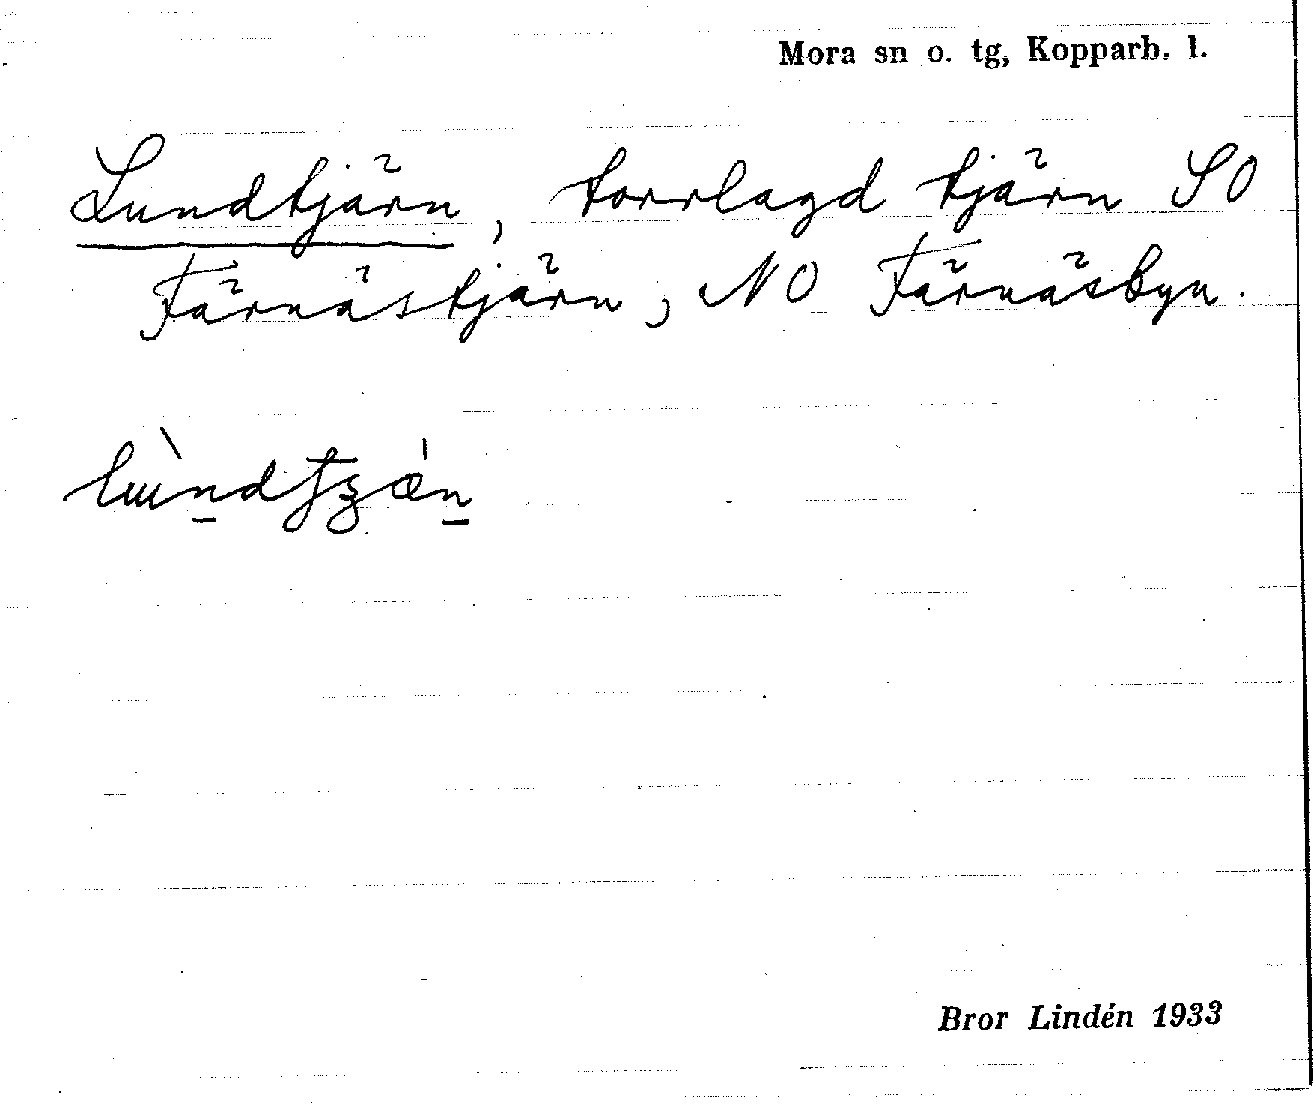 Mora sn o. tg, Kopparb. l.
Lundtjärn, torrlagd tjärn SO
Färnästjärn, NO Färnäsbyn.
Bror Lindén 1933